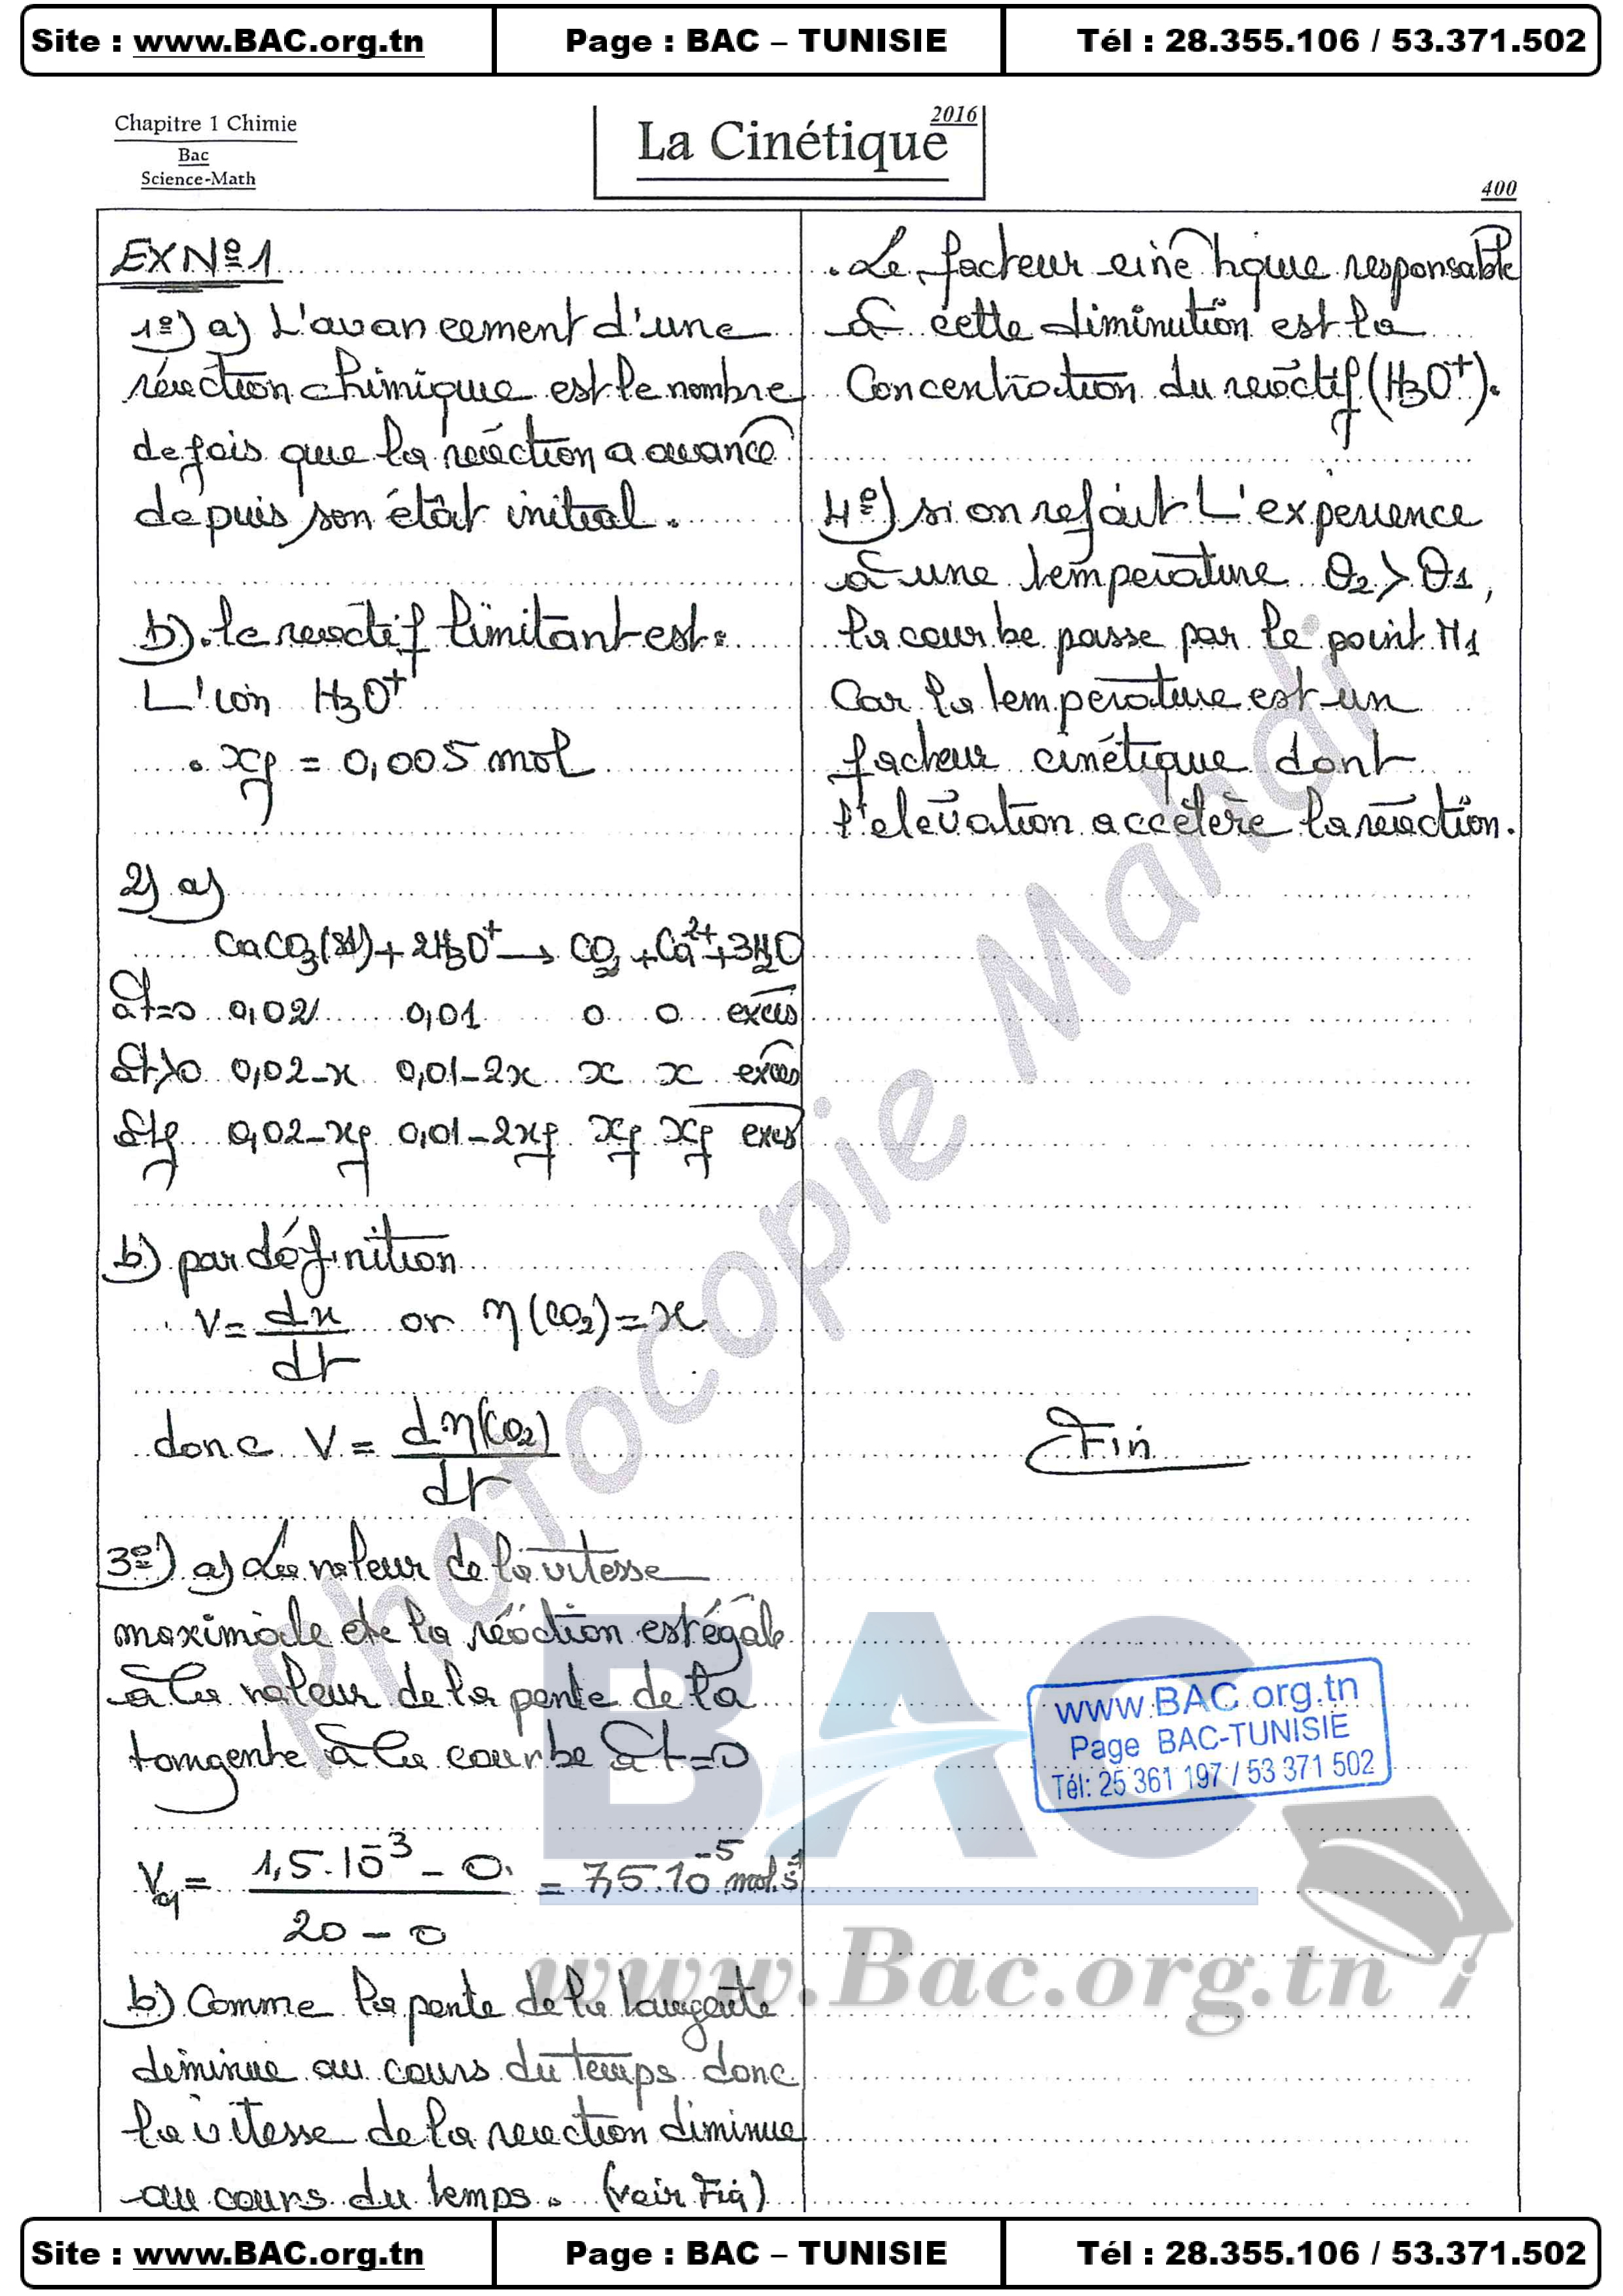 Site : www.BAC.org.tn
Page : BAC – TUNISIE
Tél : 28.355.106 / 53.371.502
Chapitre 1 Chimie
Bac
Science-Math
La Cinétique
2016
400
EX N° 1
1°) a) L'avancement d'une
réaction chimique est le nombre
de fois que la réaction a avancé
depuis son état initial.
b). le réactif limitant est :
L'ion H3O+
. xf = 0,005 mol
2) a)
CaCO3(sd) + 2H3O+ → CO2 + Ca2+ + 3H2O
à t=0 0,02 0,01 0 0 excès
à t>0 0,02-x 0,01-2x x x excès
à tf 0,02-xf 0,01-2xf xf xf excès
b) par définition
V = dx/dt or n(CO2) = x
donc V = dn(CO2)/dt
3°) a) La valeur de la vitesse
maximale de la réaction est égale
à la valeur de la pente de la
tangente à la courbe à t=0
V = 1,5.10-3 - 0 / 20 - 0 = 7,5.10-5 mol.s-1
b) Comme la pente de la tangente
diminue au cours du temps donc
la vitesse de la reaction diminue
au cours du temps. (voir Fig)
. Le facteur cinétique responsable
à cette diminution est la
Concentration du réactif (H3O+).
4°) si on refait L'expérience
à une température θ2 > θ1,
la courbe passe par le point M1
Car la température est un
facteur cinétique dont
l'élévation accélère la réaction.
Fin
Photocopie Mahdi
BAC
www.Bac.org.tn
www.BAC.org.tn
Page BAC-TUNISIE
Tél: 25 361 197 / 53 371 502
Site : www.BAC.org.tn
Page : BAC – TUNISIE
Tél : 28.355.106 / 53.371.502